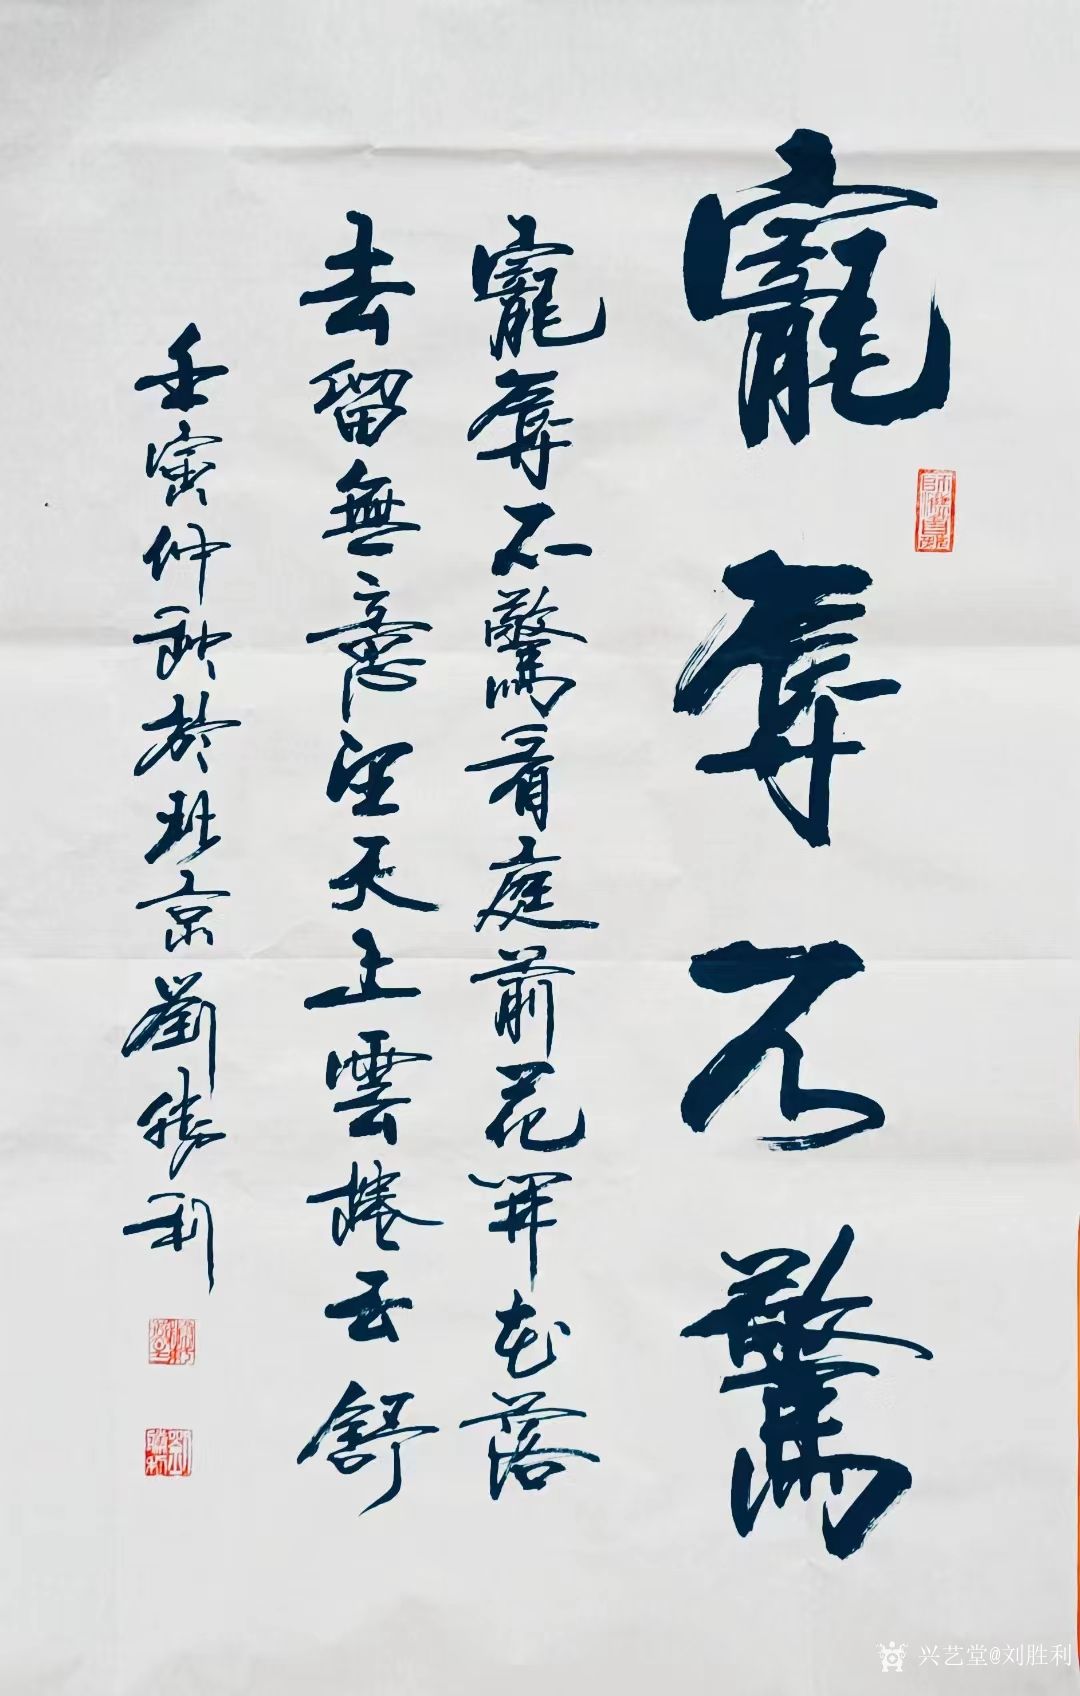 寵辱不驚
寵辱不驚看庭前花開花落
去留無意望天上雲捲云舒
壬寅仲秋於北京劉勝利
劉勝利
兴艺堂@刘胜利